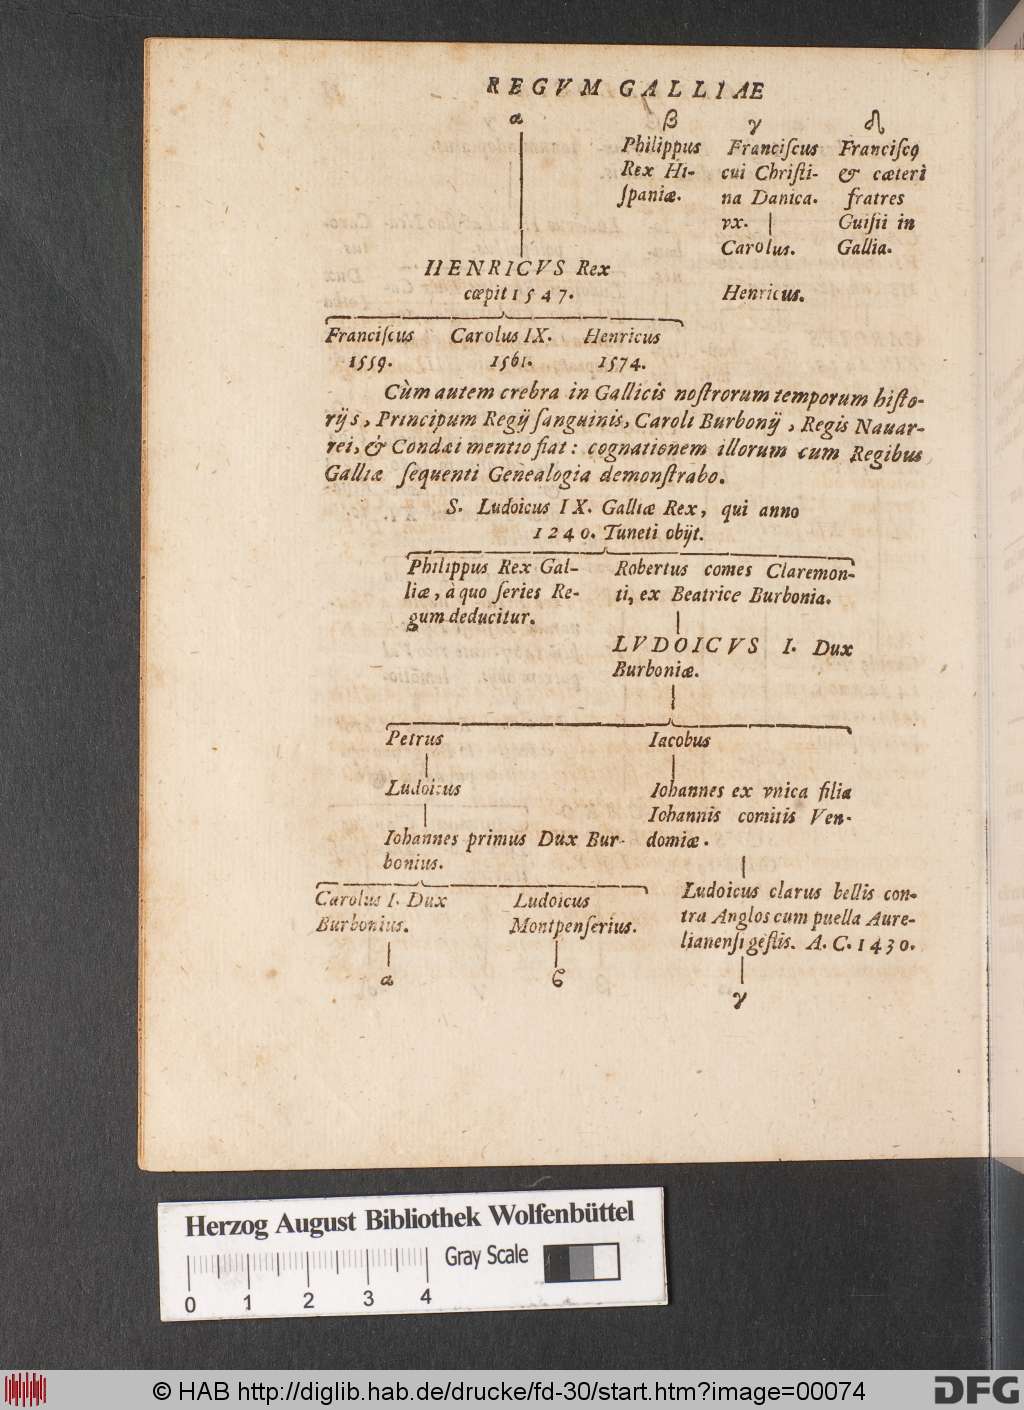 REGVM GALLIAE
α β γ δ
Philippus Franciſcus Franciſcꝰ
Rex Hi- cui Chriſti- & cæteri
ſpaniæ. na Danica. fratres
vx. Guiſii in
Carolus. Gallia.
HENRICVS Rex
cœpit 1547. Henricus.
Franciſcus Carolus IX. Henricus
1559. 1561. 1574.
Cùm autem crebra in Gallicis noſtrorum temporum hiſto-
rijs, Principum Regij ſanguinis, Caroli Burbonij, Regis Nauar-
rei, & Condæi mentio fiat: cognationem illorum cum Regibus
Galliæ ſequenti Genealogia demonſtrabo.
S. Ludoicus IX. Galliæ Rex, qui anno
1240. Tuneti obijt.
Philippus Rex Gal- Robertus comes Claremon-
liæ, à quo ſeries Re- ti, ex Beatrice Burbonia.
gum deducitur.
LVDOICVS I. Dux
Burboniæ.
Petrus Iacobus
Ludoicus Iohannes ex vnica filia
Iohannis comitis Ven-
Iohannes primus Dux Bur- domiæ.
bonius.
Carolus I. Dux Ludoicus Ludoicus clarus bellis con-
Burbonius. Montpenſerius. tra Anglos cum puella Aure-
lianenſi geſtis. A. C. 1430.
α ϐ γ
Herzog August Bibliothek Wolfenbüttel
Gray Scale
0 1 2 3 4
© HAB http://diglib.hab.de/drucke/fd-30/start.htm?image=00074
DFG